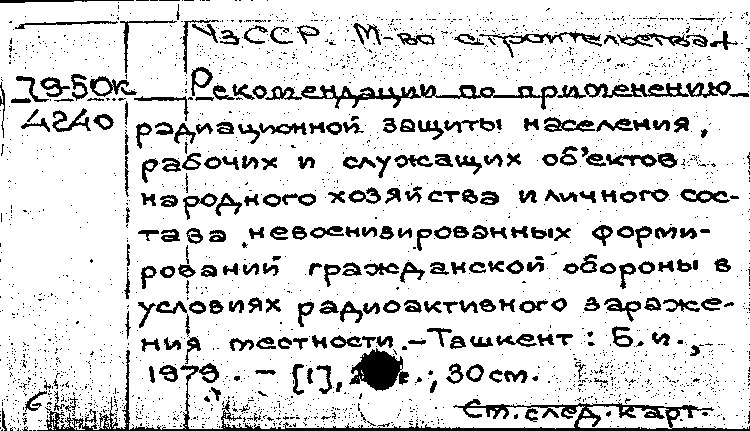 УзССР. М-во строительства.+
79-50К Рекомендации по применению
4240 радиационной защиты населения,
рабочих и служащих об'ектов
народного хозяйства и личного сос-
тава невоенизированных форми-
рований гражданской обороны в
условиях радиоактивного зараже-
ния местности. - Ташкент: Б.и.,
1979. - [1], с.; 30 см.
6 См. след. карт.